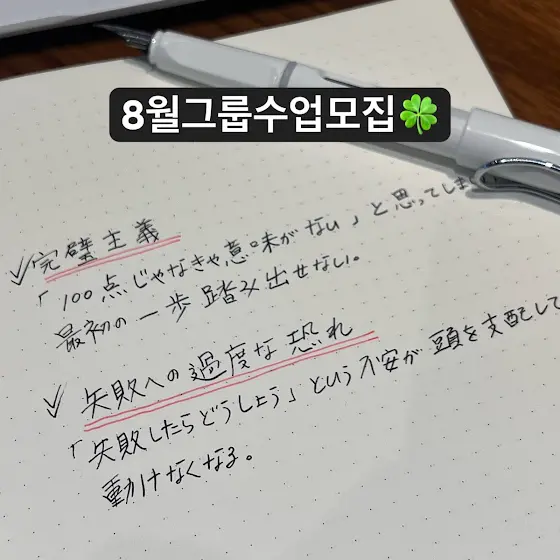 8월그룹수업모집🍀
✓完璧主義
「100点じゃなきゃ意味がない」と思ってしま
最初の一歩踏み出せない。
✓失敗への過度な恐れ
「失敗したらどうしよう」という不安が頭を支配して
動けなくなる。